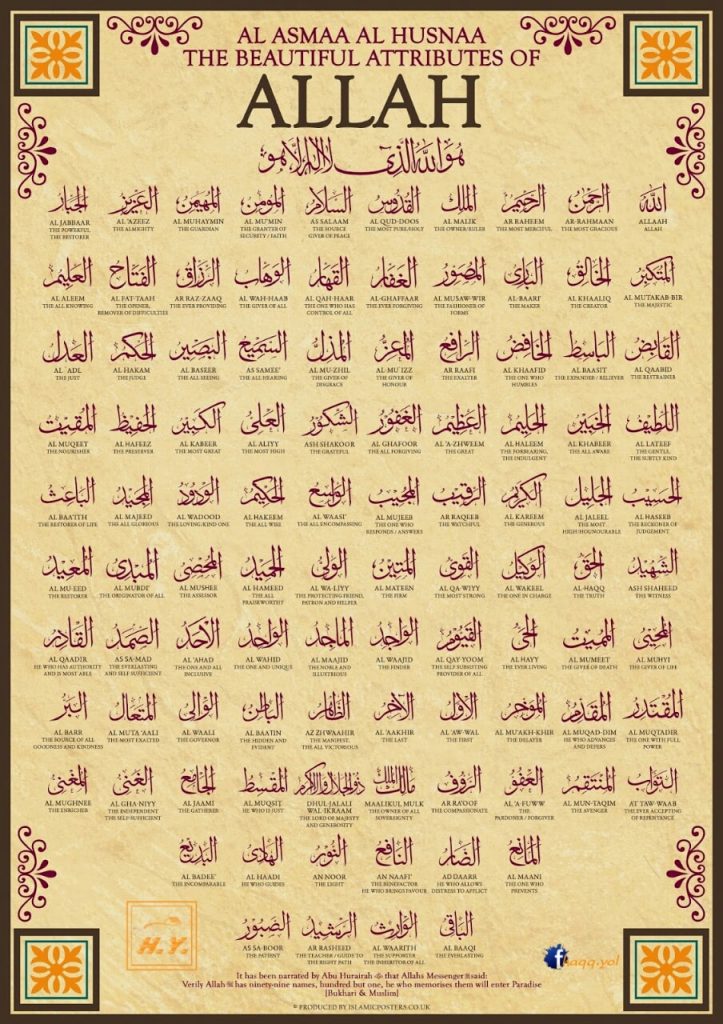 AL ASMAA AL HUSNAA
THE BEAUTIFUL ATTRIBUTES OF
ALLAH
هو الله الذي لا إله إلا هو
الله
ALLAAH
ALLAH
الرحمن
AR-RAHMAAN
THE MOST GRACIOUS
الرحيم
AR RAHEEM
THE MOST MERCIFUL
الملك
AL MALIK
THE OWNER/RULER
القدوس
AL QUD-DOOS
THE MOST PURE/HOLY
السلام
AS SALAAM
THE SOURCE
GIVER OF PEACE
المؤمن
AL MU'MIN
THE GRANTER OF
SECURITY / FAITH
المهيمن
AL MUHAYMIN
THE GUARDIAN
العزيز
AL 'AZEEZ
THE ALMIGHTY
الجبار
AL JABBAAR
THE POWERFUL,
THE RESTORER
المتكبر
AL MUTAKAB-BIR
THE MAJESTIC
الخالق
AL KHAALIQ
THE CREATOR
البارئ
AL-BAARI'
THE MAKER
المصور
AL MUSAW-WIR
THE FASHIONER OF
FORMS
الغفار
AL-GHAFFAAR
THE EVER FORGIVING
القهار
AL QAH-HAAR
THE ONE WHO HAS
CONTROL OF ALL
الوهاب
AL WAH-HAAB
THE GIVER OF ALL
الرزاق
AR RAZ-ZAAQ
THE EVER PROVIDING
الفتاح
AL FAT-TAAH
THE OPENER,
REMOVER OF DIFFICULTIES
العليم
AL ALEEM
THE ALL KNOWING
القابض
AL QAABID
THE RESTRAINER
الباسط
AL BAASIT
THE EXPANDER / RELIEVER
الخافض
AL KHAAFID
THE ONE WHO
HUMBLES
الرافع
AR RAAFI
THE EXALTER
المعز
AL-MU'IZZ
THE GIVER OF
HONOUR
المذل
AL MU-ZHIL
THE GIVER OF
DISGRACE
السميع
AS SAMEE'
THE ALL HEARING
البصير
AL BASEER
THE ALL SEEING
الحكم
AL HAKAM
THE JUDGE
العدل
AL 'ADL
THE JUST
اللطيف
AL LATEEF
THE GENTLE,
THE SUBTLY KIND
الخبير
AL KHABEER
THE ALL AWARE
الحليم
AL HALEEM
THE FORBEARING,
THE INDULGENT
العظيم
AL 'A-ZHWEEM
THE GREAT
الغفور
AL GHAFOOR
THE ALL FORGIVING
الشكور
ASH SHAKOOR
THE GRATEFUL
العلي
AL ALIYY
THE MOST HIGH
الكبير
AL KABEER
THE MOST GREAT
الحفيظ
AL HAFEEZ
THE PRESERVER
المقيت
AL MUQEET
THE NOURISHER
الحسيب
AL HASEEB
THE RECKONER OF
JUDGEMENT
الجليل
AL JALEEL
THE MOST
HIGH/HONOURABLE
الكريم
AL KAREEM
THE GENEROUS
الرقيب
AR RAQEEB
THE WATCHFUL
المجيب
AL MUJEEB
THE ONE WHO
RESPONDS / ANSWERS
الواسع
AL WAASI'
THE ALL ENCOMPASSING
الحكيم
AL HAKEEM
THE ALL WISE
الودود
AL WADOOD
THE LOVING/KIND ONE
المجيد
AL MAJEED
THE ALL GLORIOUS
الباعث
AL BAA'ITH
THE RESTORER OF LIFE
الشهيد
ASH SHAHEED
THE WITNESS
الحق
AL-HAQQ
THE TRUTH
الوكيل
AL WAKEEL
THE ONE IN CHARGE
القوي
AL QA-WIYY
THE MOST STRONG
المتين
AL MATEEN
THE FIRM
الولي
AL WA-LIYY
THE PROTECTING FRIEND,
PATRON AND HELPER
الحميد
AL HAMEED
THE ALL
PRAISEWORTHY
المحصي
AL MUSHEE
THE ASSESSOR
المبدئ
AL MUBDI'
THE ORIGINATOR OF ALL
المعيد
AL MU-EED
THE RESTORER
المحيي
AL MUHYI
THE GIVER OF LIFE
المميت
AL MUMEET
THE GIVER OF DEATH
الحي
AL HAYY
THE EVER LIVING
القيوم
AL QAY-YOOM
THE SELF SUBSISTING
PROVIDER OF ALL
الواجد
AL WAAJID
THE FINDER
الماجد
AL MAAJID
THE NOBLE AND
ILLUSTRIOUS
الواحد
AL WAHID
THE ONE AND UNIQUE
الأحد
AL 'AHAD
THE ONS AND ALL
INCLUSIVE
الصمد
AS SA-MAD
THE EVERLASTING
AND SELF SUFFICIENT
القادر
AL QAADIR
HE WHO HAS AUTHORITY
AND IS MOST ABLE
المقتدر
AL MUQTADER
THE ONE WITH FULL
POWER
المقدم
AL MUQAD-DIM
HE WHO ADVANCES
AND DEFERS
المؤخر
AL MU'AKH-KHIR
THE DELAYER
الأول
AL 'AW-WAL
THE FIRST
الآخر
AL 'AAKHIR
THE LAST
الظاهر
AZ ZHWAAHIR
THE MANIFEST,
THE ALL VICTORIOUS
الباطن
AL BAATIN
THE HIDDEN AND
EVIDENT
الوالي
AL WAALI
THE GOVERNOR
المتعال
AL MUTA 'AALI
THE MOST EXALTED
البر
AL BARR
THE SOURCE OF ALL
GOODNESS AND KINDNESS
التواب
AT TAW-WAAB
THE EVER ACCEPTING
OF REPENTANCE
المنتقم
AL MUN-TAQIM
THE AVENGER
العفو
AL 'A-FUWW
THE
PARDONER / FORGIVER
الرؤوف
AR RA'OOF
THE COMPASSIONATE
مالك الملك
MAALIKUL MULK
THE OWNER OF ALL
SOVEREIGNTY
ذو الجلال والإكرام
DHUL-JALALI
WAL-IKRAAM
THE LORD OF MAJESTY
AND GENEROSITY
المقسط
AL MUQSIT
HE WHO IS JUST
الجامع
AL JAAMI
THE GATHERER
الغني
AL GHA-NIYY
THE INDEPENDENT
THE SELF SUFFICIENT
المغني
AL MUGHNEE
THE ENRICHER
المانع
AL MAANI
THE ONE WHO
PREVENTS
الضار
AD DAARR
HE WHO ALLOWS
DISTRESS TO AFFLICT
النافع
AN NAAFI'
THE BENEFACTOR
HE WHO BRINGS FAVOUR
النور
AN NOOR
THE LIGHT
الهادي
AL HAADI
HE WHO GUIDES
البديع
AL BADEE'
THE INCOMPARABLE
الباقي
AL BAAQI
THE EVERLASTING
الوارث
AL WAARITH
THE SUPPORTER
THE INHERITOR OF ALL
الرشيد
AR RASHEED
THE TEACHER / GUIDE TO
THE RIGHT PATH
الصبور
AS SA-BOOR
THE PATIENT
H.Y.
f haqq.yol
It has been narrated by Abu Hurairah that Allahs Messenger ﷺ said:
Verily Allah has ninety-nine names, hundred but one, he who memorises them will enter Paradise
[Bukhari & Muslims]
© PRODUCED BY ISLAMICPOSTERS.CO.UK